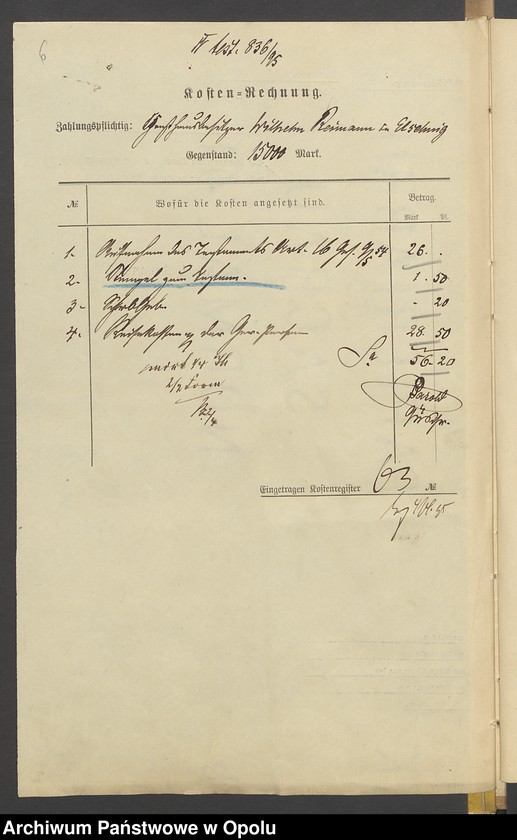 6
IV test. 836/95
Kosten-Rechnung.
Zahlungspflichtig: Gasthausbesitzer Wilhelm Reimann in
Gegenstand: 15000 Mark.
№ Wofür die Kosten angesetzt sind. Betrag.
Mark Pf.
1. Aufnahme des Testaments Art. 16 Ges. 9/5 54 26. .
2. Stempel zum Testam. 1. 50
3. Schreibgeb. - 20
4. Reisekosten der Ger. Person 28. 50
Sa 56. 20
Eingetragen Kostenregister 63 №
Archiwum Państwowe w Opolu